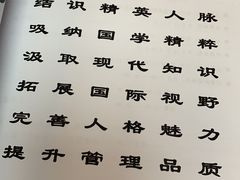 结识精英人脉
吸纳国学精粹
汲取现代知识
拓展国际视野
完善人格魅力
提升管理品质